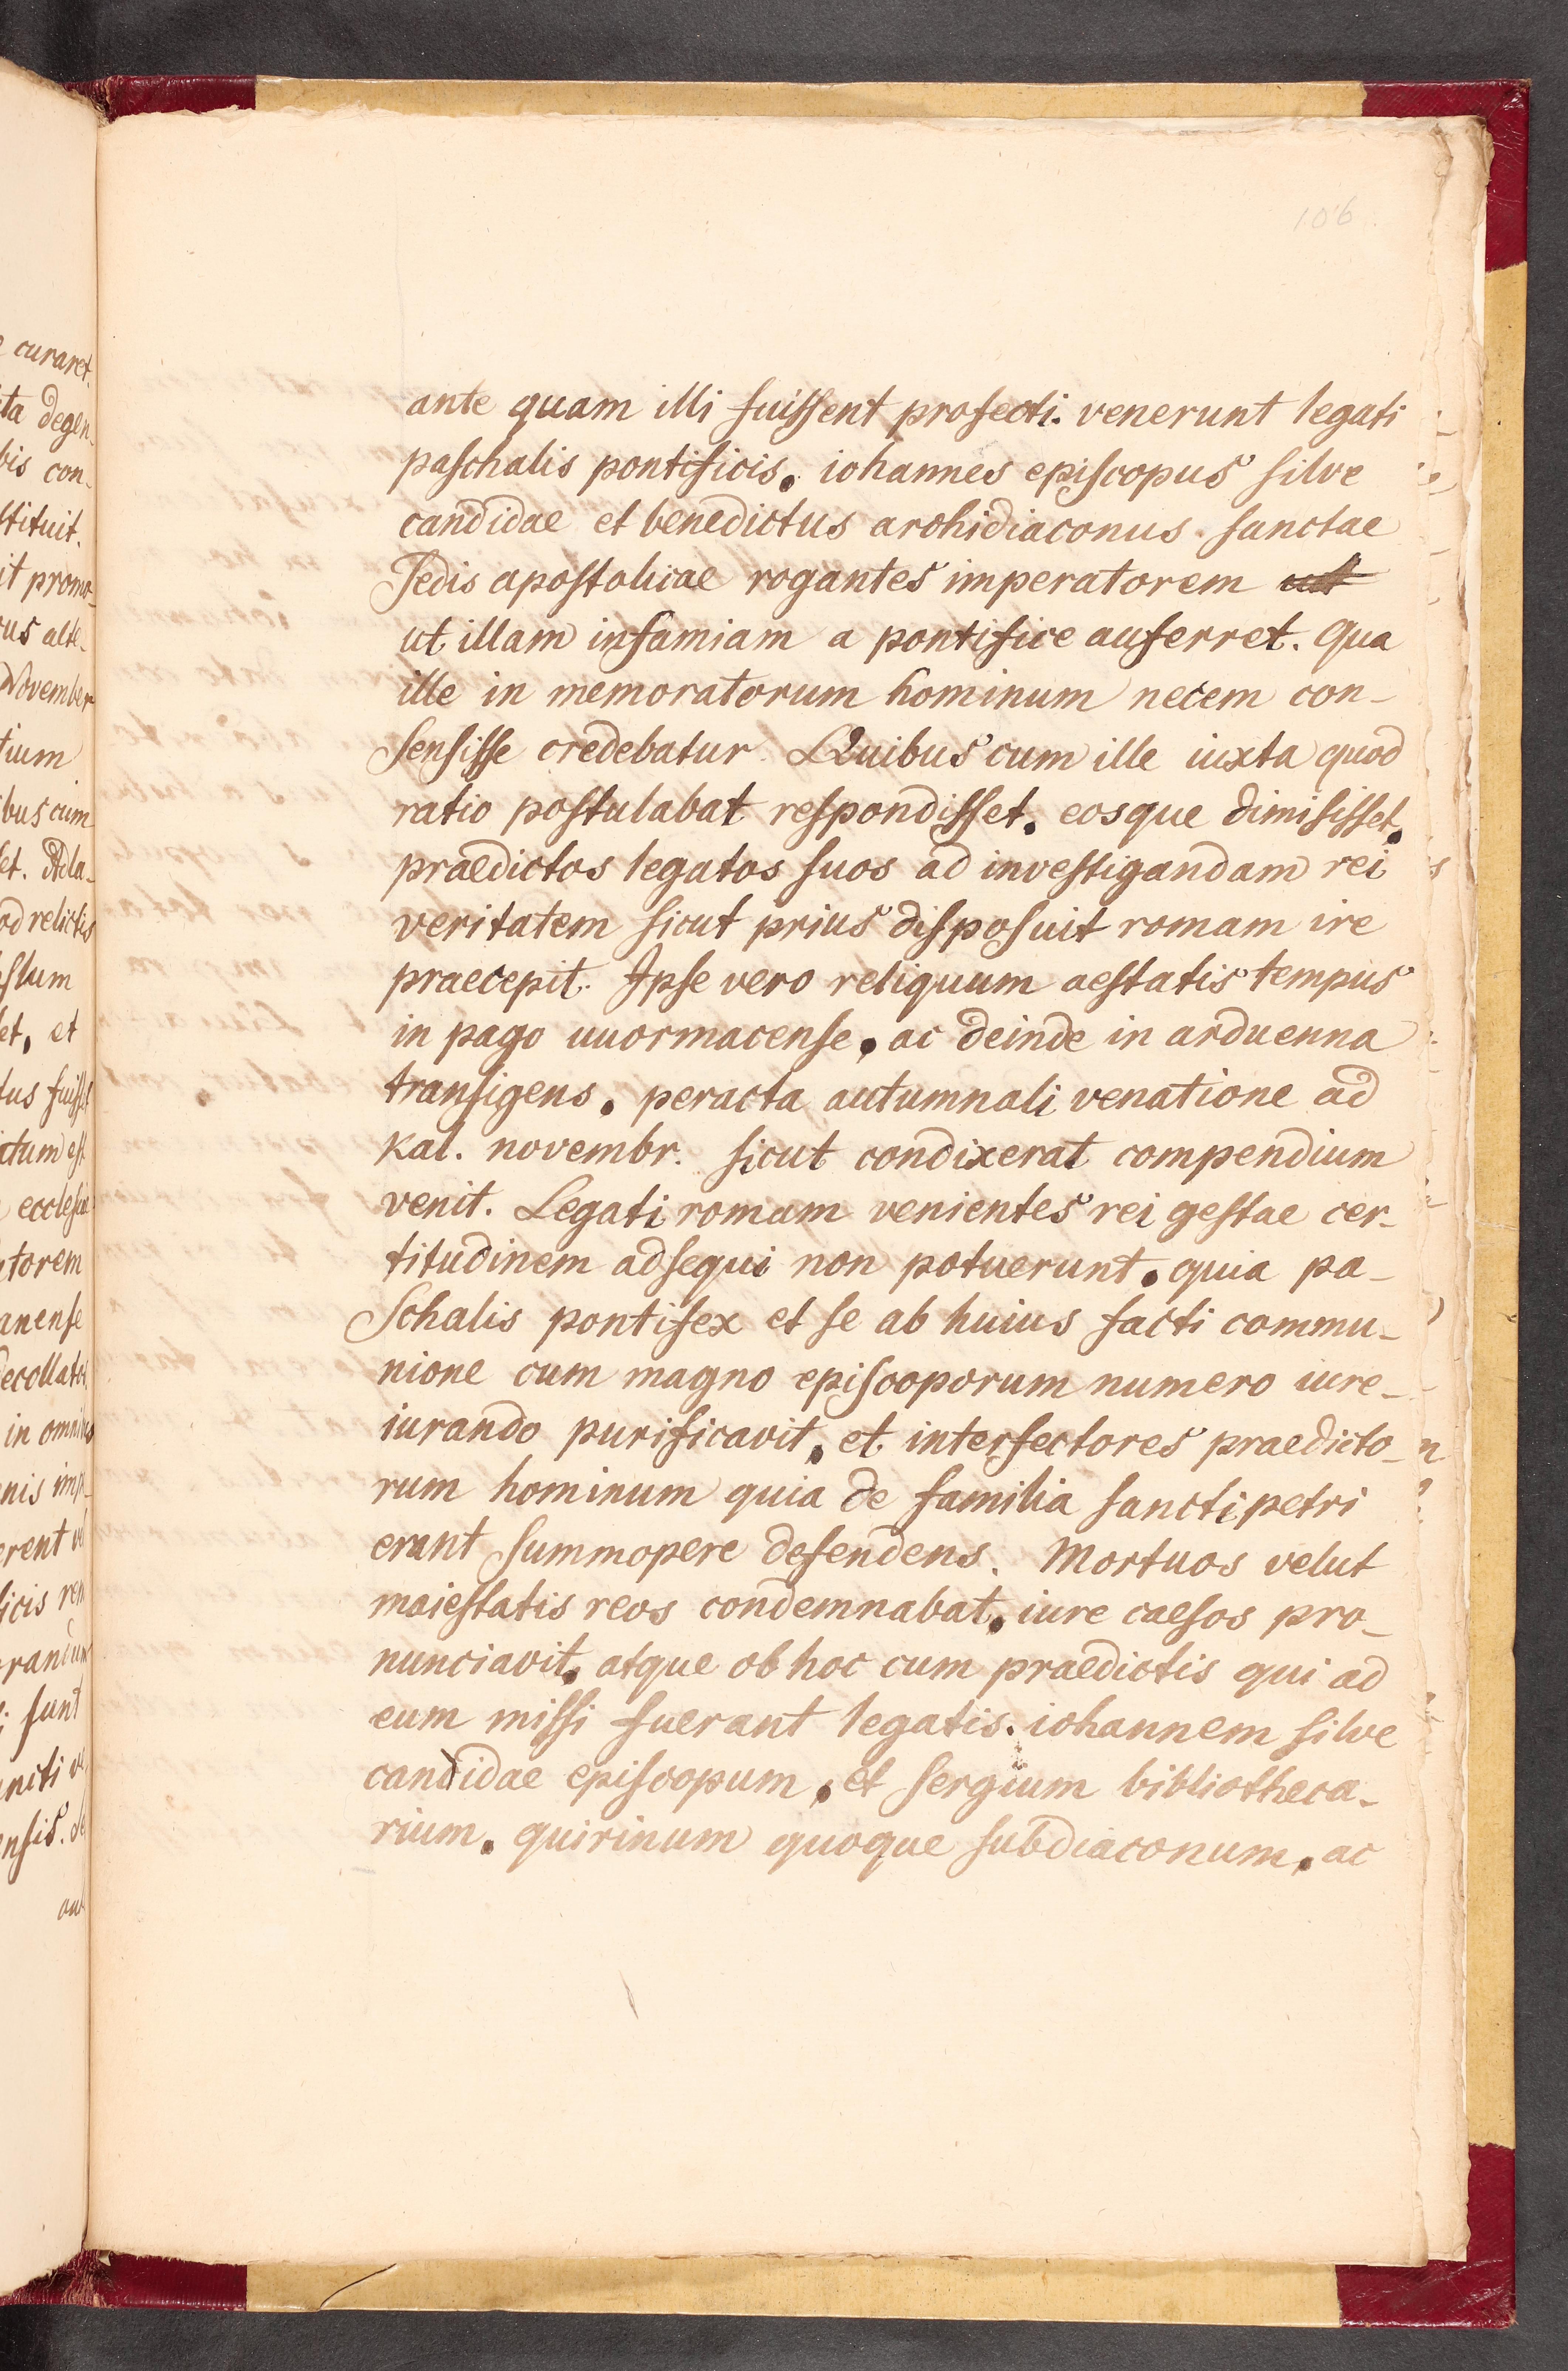 106
ante quam illi fuissent profecti. venerunt legati
paschalis pontificis. iohannes episcopus silve
candidae et benedictus archidiaconus. sanctae
Sedis apostolicae rogantes imperatorem
ut illam infamiam a pontifice auferret. qua
ille in memoratorum hominum necem con-
sensisse credebatur. Quibus cum ille iuxta quod
ratio postulabat respondisset. eosque dimisisset.
praedictos legatos suos ad investigandam rei
veritatem sicut prius disposuit romam ire
praecepit. Ipse vero reliquum aestatis tempus
in pago uuormacense. ac deinde in arduenna
transigens. peracta autumnali venatione ad
kal. novembr. sicut condixerat compendium
venit. Legati romam venientes rei gestae cer-
titudinem adsequi non potuerunt. quia pa-
schalis pontifex et se ab huius facti commu-
nione cum magno episcoporum numero iure-
iurando purificavit. et interfectores praedicto-
rum hominum quia de familia sancti petri
erant summopere defendens. Mortuos velut
maiestatis reos condemnabat. iure caesos pro-
nunciavit. atque ob hoc cum praedictis qui ad
eum missi fuerant legatis. iohannem silve
candidae episcopum. et sergium bibliotheca-
rium. quirinum quoque subdiaconum. ac